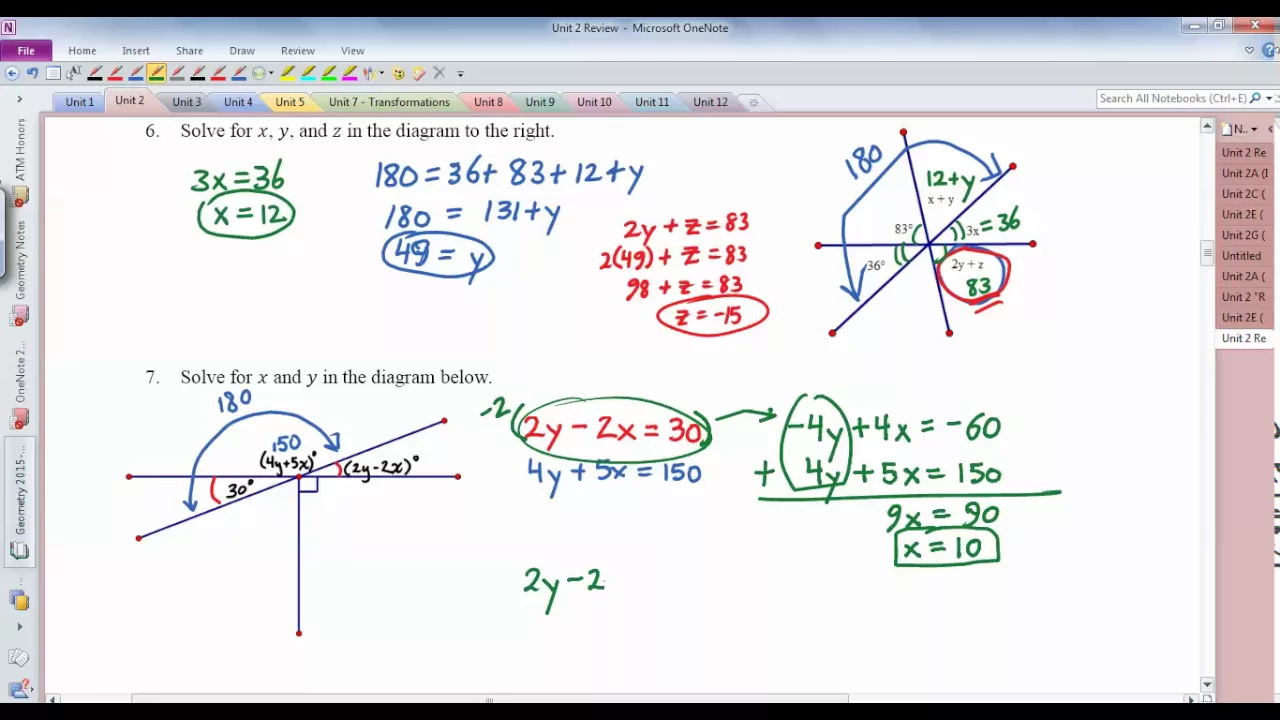 Unit 2 Review - Microsoft OneNote
File Home Insert Share Draw Review View
Unit 1 Unit 2 Unit 3 Unit 4 Unit 5 Unit 7 - Transformations Unit 8 Unit 9 Unit 10 Unit 11 Unit 12
Search All Notebooks (Ctrl+E)
N..
ATM Honors
Geometry Notes
OneNote 2...
Geometry 2015-...
6. Solve for x, y, and z in the diagram to the right.
3x = 36
x = 12
180 = 36 + 83 + 12 + y
180 = 131 + y
49 = y
2y + z = 83
2(49) + z = 83
98 + z = 83
z = -15
180
12+y
x + y
83°
3x = 36
36°
2y + z
83
7. Solve for x and y in the diagram below.
180
150
(4y+5x)°
(2y-2x)°
30°
-2(2y - 2x = 30)
4y + 5x = 150
-4y + 4x = -60
+ 4y + 5x = 150
9x = 90
x = 10
2y - 2
Unit 2 Re
Unit 2A (I
Unit 2C (
Unit 2E (
Unit 2G (
Untitled
Unit 2A (
Unit 2 "R
Unit 2E (
Unit 2 Re